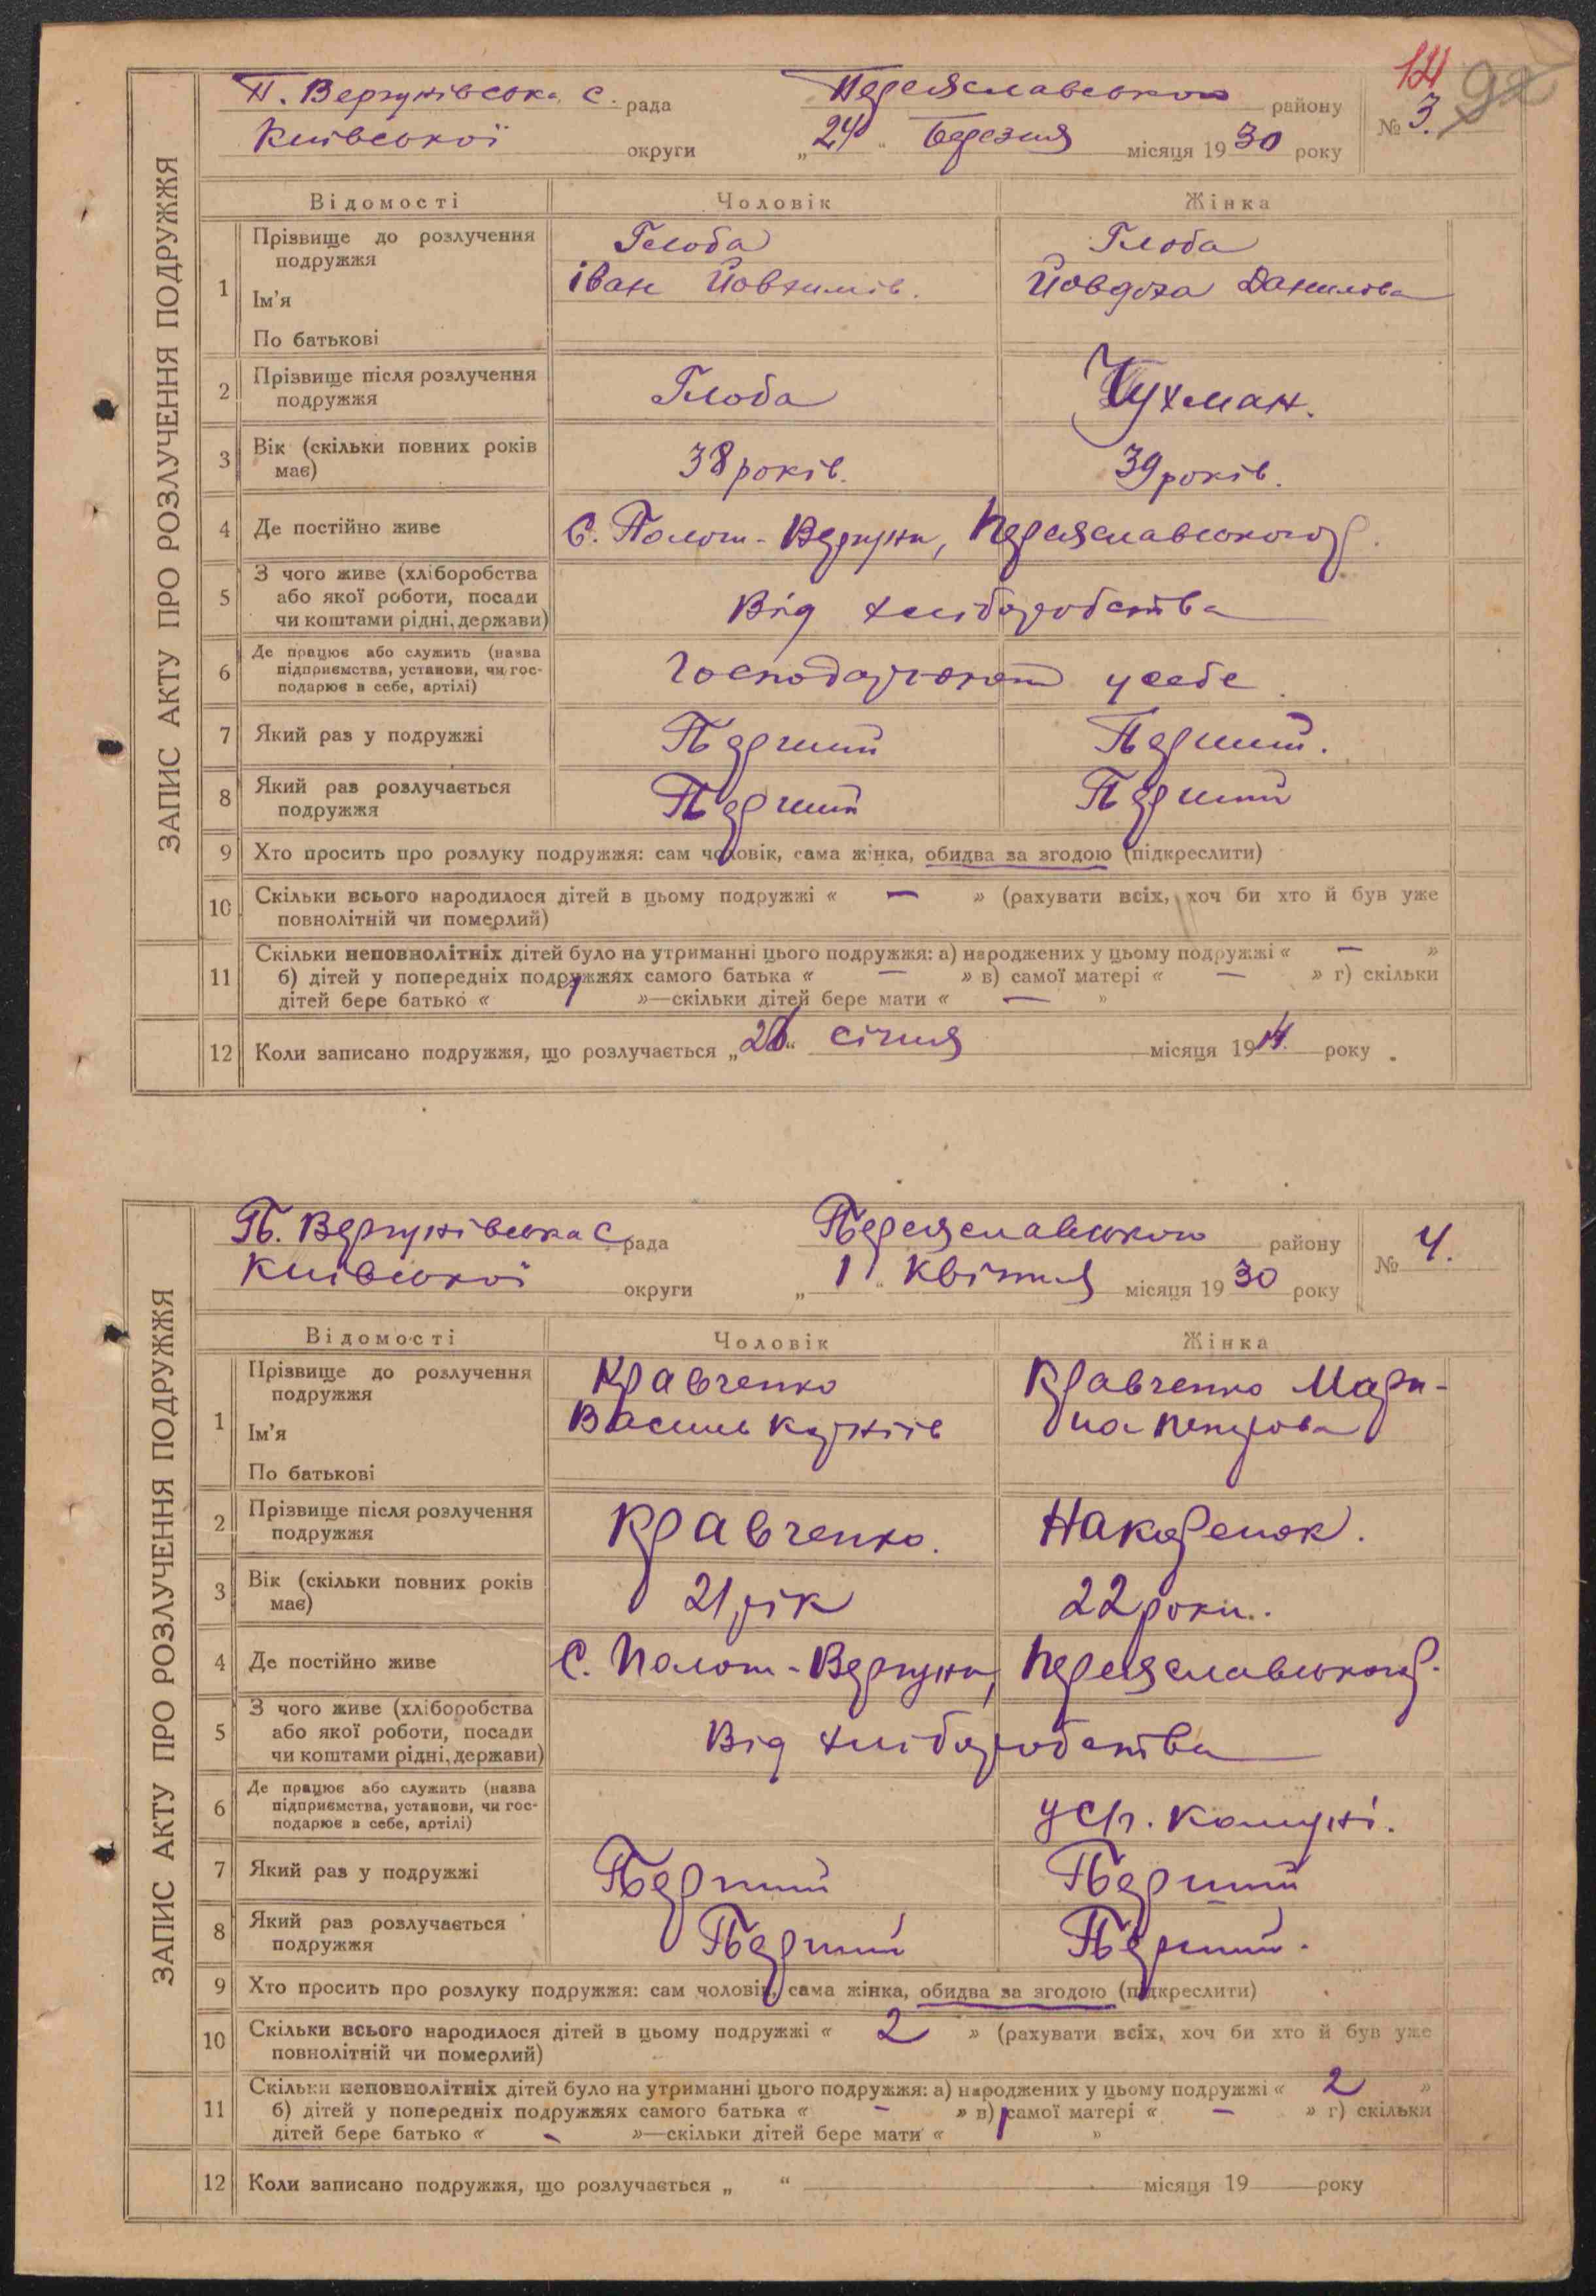 14
П. Вергунівська с. рада Переяславського району № 3.
Київської округи „24" березня місяця 1930 року
ЗАПИС АКТУ ПРО РОЗЛУЧЕННЯ ПОДРУЖЖЯ
Відомості Чоловік Жінка
1 Прізвище до розлучення подружжя Глоба Глоба
Ім'я іван Йовхимів. Йовдоха Данилова
По батькові
2 Прізвище після розлучення подружжя Глоба Чухман.
3 Вік (скільки повних років має) 38 років. 39 років.
4 Де постійно живе С. Полот-Вергуни, Переяславського р.
5 З чого живе (хліборобства
або якої роботи, посади
чи коштами рідні, держави) Від хліборобства
6 Де працює або служить (назва
підприємства, установи, чи гос-
подарює в себе, артілі) Господарюють у себе
7 Який раз у подружжі Перший Перший.
8 Який раз розлучається подружжя Перший Перший
9 Хто просить про розлуку подружжя: сам чоловік, сама жінка, обидва за згодою (підкреслити)
10 Скільки всього народилося дітей в цьому подружжі « — » (рахувати всіх, хоч би хто й був уже
повнолітній чи померлий)
11 Скільки неповнолітніх дітей було на утриманні цього подружжя: а) народжених у цьому подружжі « — »
б) дітей у попередніх подружжях самого батька « — » в) самої матері « — » г) скільки
дітей бере батько « »—скільки дітей бере мати « — »
12 Коли записано подружжя, що розлучається „ " січня місяця 1914. року
П. Вергунівська с. рада Переяславського району № 4.
Київської округи „1" Квітня місяця 1930 року
ЗАПИС АКТУ ПРО РОЗЛУЧЕННЯ ПОДРУЖЖЯ
Відомості Чоловік Жінка
1 Прізвище до розлучення подружжя Кравченко Кравченко Мари-
Ім'я Василь Кузмів на Петрова
По батькові
2 Прізвище після розлучення подружжя Кравченко. Накоренок.
3 Вік (скільки повних років має) 21 рік 22 роки.
4 Де постійно живе С. Полот-Вергуни, Переяславського р.
5 З чого живе (хліборобства
або якої роботи, посади
чи коштами рідні, держави) Від хліборобства
6 Де працює або служить (назва
підприємства, установи, чи гос-
подарює в себе, артілі) у с/г. комуні.
7 Який раз у подружжі Перший Перший
8 Який раз розлучається подружжя Перший Перший.
9 Хто просить про розлуку подружжя: сам чоловік, сама жінка, обидва за згодою (підкреслити)
10 Скільки всього народилося дітей в цьому подружжі « 2 » (рахувати всіх, хоч би хто й був уже
повнолітній чи померлий)
11 Скільки неповнолітніх дітей було на утриманні цього подружжя: а) народжених у цьому подружжі « 2 »
б) дітей у попередніх подружжях самого батька « — » в) самої матері « — » г) скільки
дітей бере батько « - »—скільки дітей бере мати « »
12 Коли записано подружжя, що розлучається „ " місяця 19 року